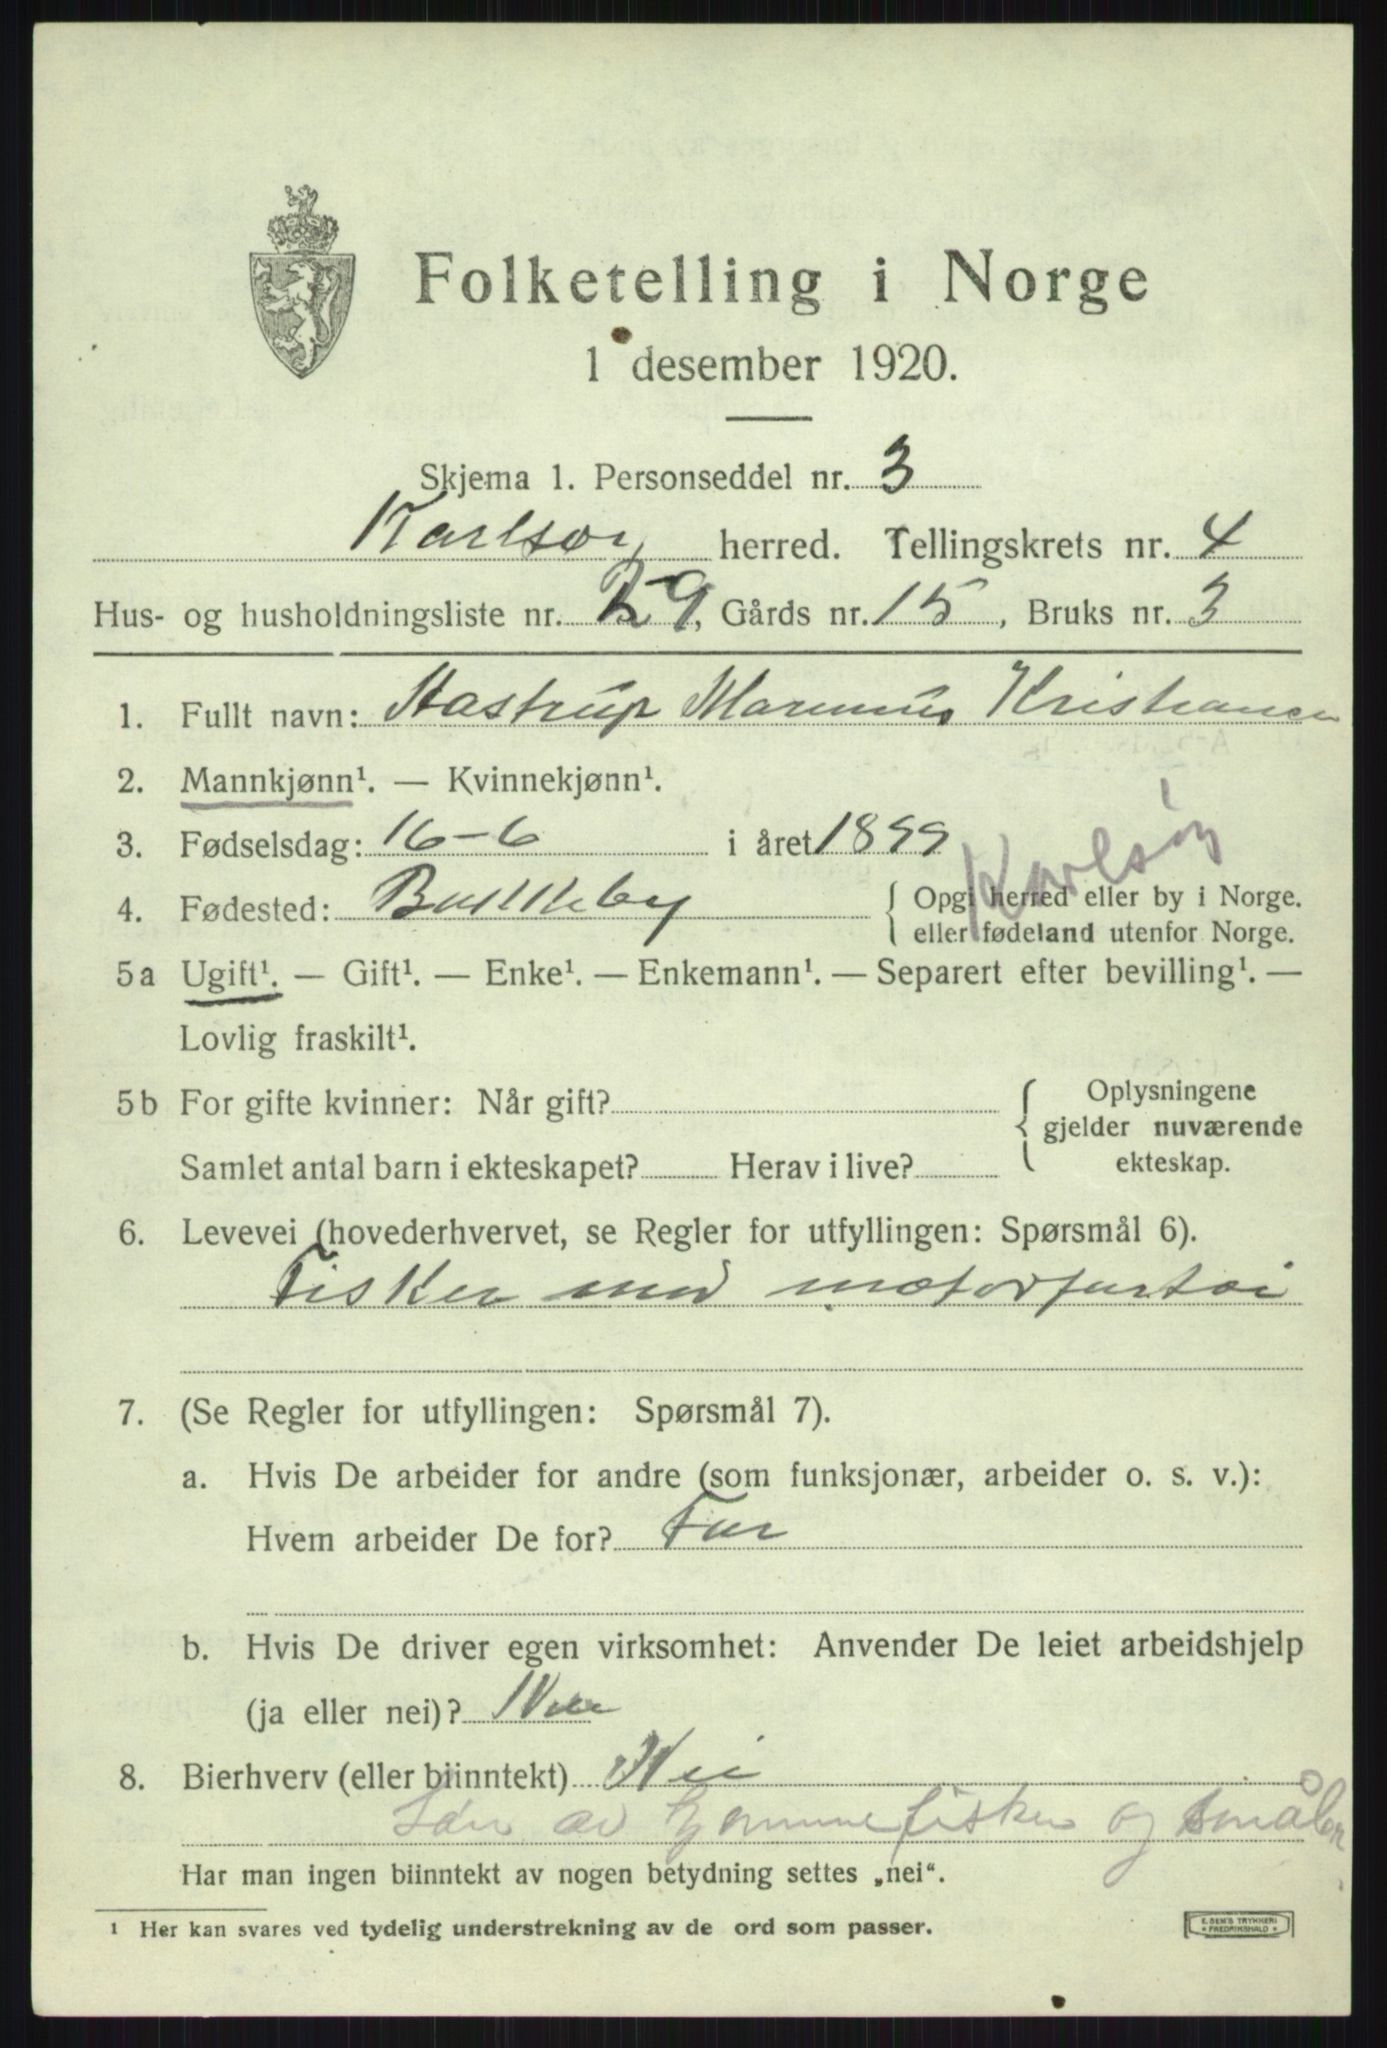 Folketelling i Norge
1 desember 1920.
Skjema 1. Personseddel nr. 3
Karlsøy herred. Tellingskrets nr. 4
Hus- og husholdningsliste nr. 29, Gårds nr. 15, Bruks nr. 3
1. Fullt navn: Hastrup Marinius Kristiansen
2. Mannkjønn¹. — Kvinnekjønn¹.
3. Fødselsdag: 16-6 i året 1899
Karlsöy
4. Fødested: { Opgi herred eller by i Norge.
eller fødeland utenfor Norge.
5a Ugift¹. — Gift¹. — Enke¹. — Enkemann¹. — Separert efter bevilling¹. —
Lovlig fraskilt¹.
5b For gifte kvinner: Når gift? { Oplysningene
gjelder nuværende
Samlet antal barn i ekteskapet? Herav i live? ekteskap.
6. Levevei (hovederhvervet, se Regler for utfyllingen: Spørsmål 6).
Fisker med motorfartøi
7. (Se Regler for utfyllingen: Spørsmål 7).
a. Hvis De arbeider for andre (som funksjonær, arbeider o. s. v.):
Hvem arbeider De for? Far
b. Hvis De driver egen virksomhet: Anvender De leiet arbeidshjelp
(ja eller nei)? Nei
8. Bierhverv (eller biinntekt) Nei
Søn av hjemmefisker og småbr
Har man ingen biinntekt av nogen betydning settes „nei“.
¹ Her kan svares ved tydelig understrekning av de ord som passer.
E. SEM'S TRYKKERI
* FREDRIKSHALD *